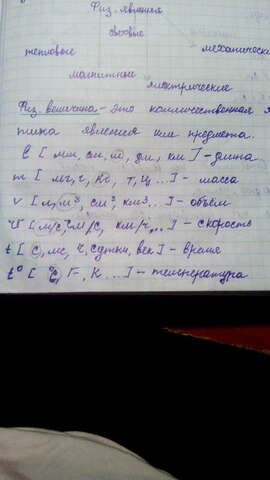 Физ. явления
световые
тепловые механическ
магнитные
электрические
Физ. величина - это количественная
явления или предмета.
l [ мм, см, м, дм, км ] - длина
m [ мг, г, кг, т, ц ...] - масса
v [ л, м³, см³, км³.. ] - объём
V [ м/с, см/с, км/ч, ... ] - скорость
t [ с, мс, ч, сутки, век ] - время
t° [ °C, F, К ... ] - температура